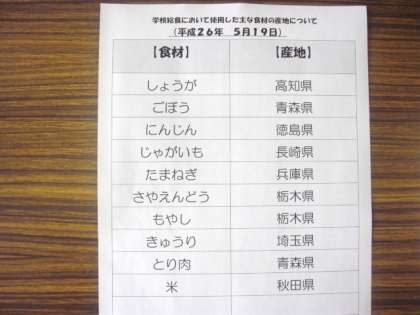 学校給食において使用した主な食材の産地について
（平成26年　5月19日）
【食材】　【産地】
しょうが　高知県
ごぼう　青森県
にんじん　徳島県
じゃがいも　長崎県
たまねぎ　兵庫県
さやえんどう　栃木県
もやし　栃木県
きゅうり　埼玉県
とり肉　青森県
米　秋田県